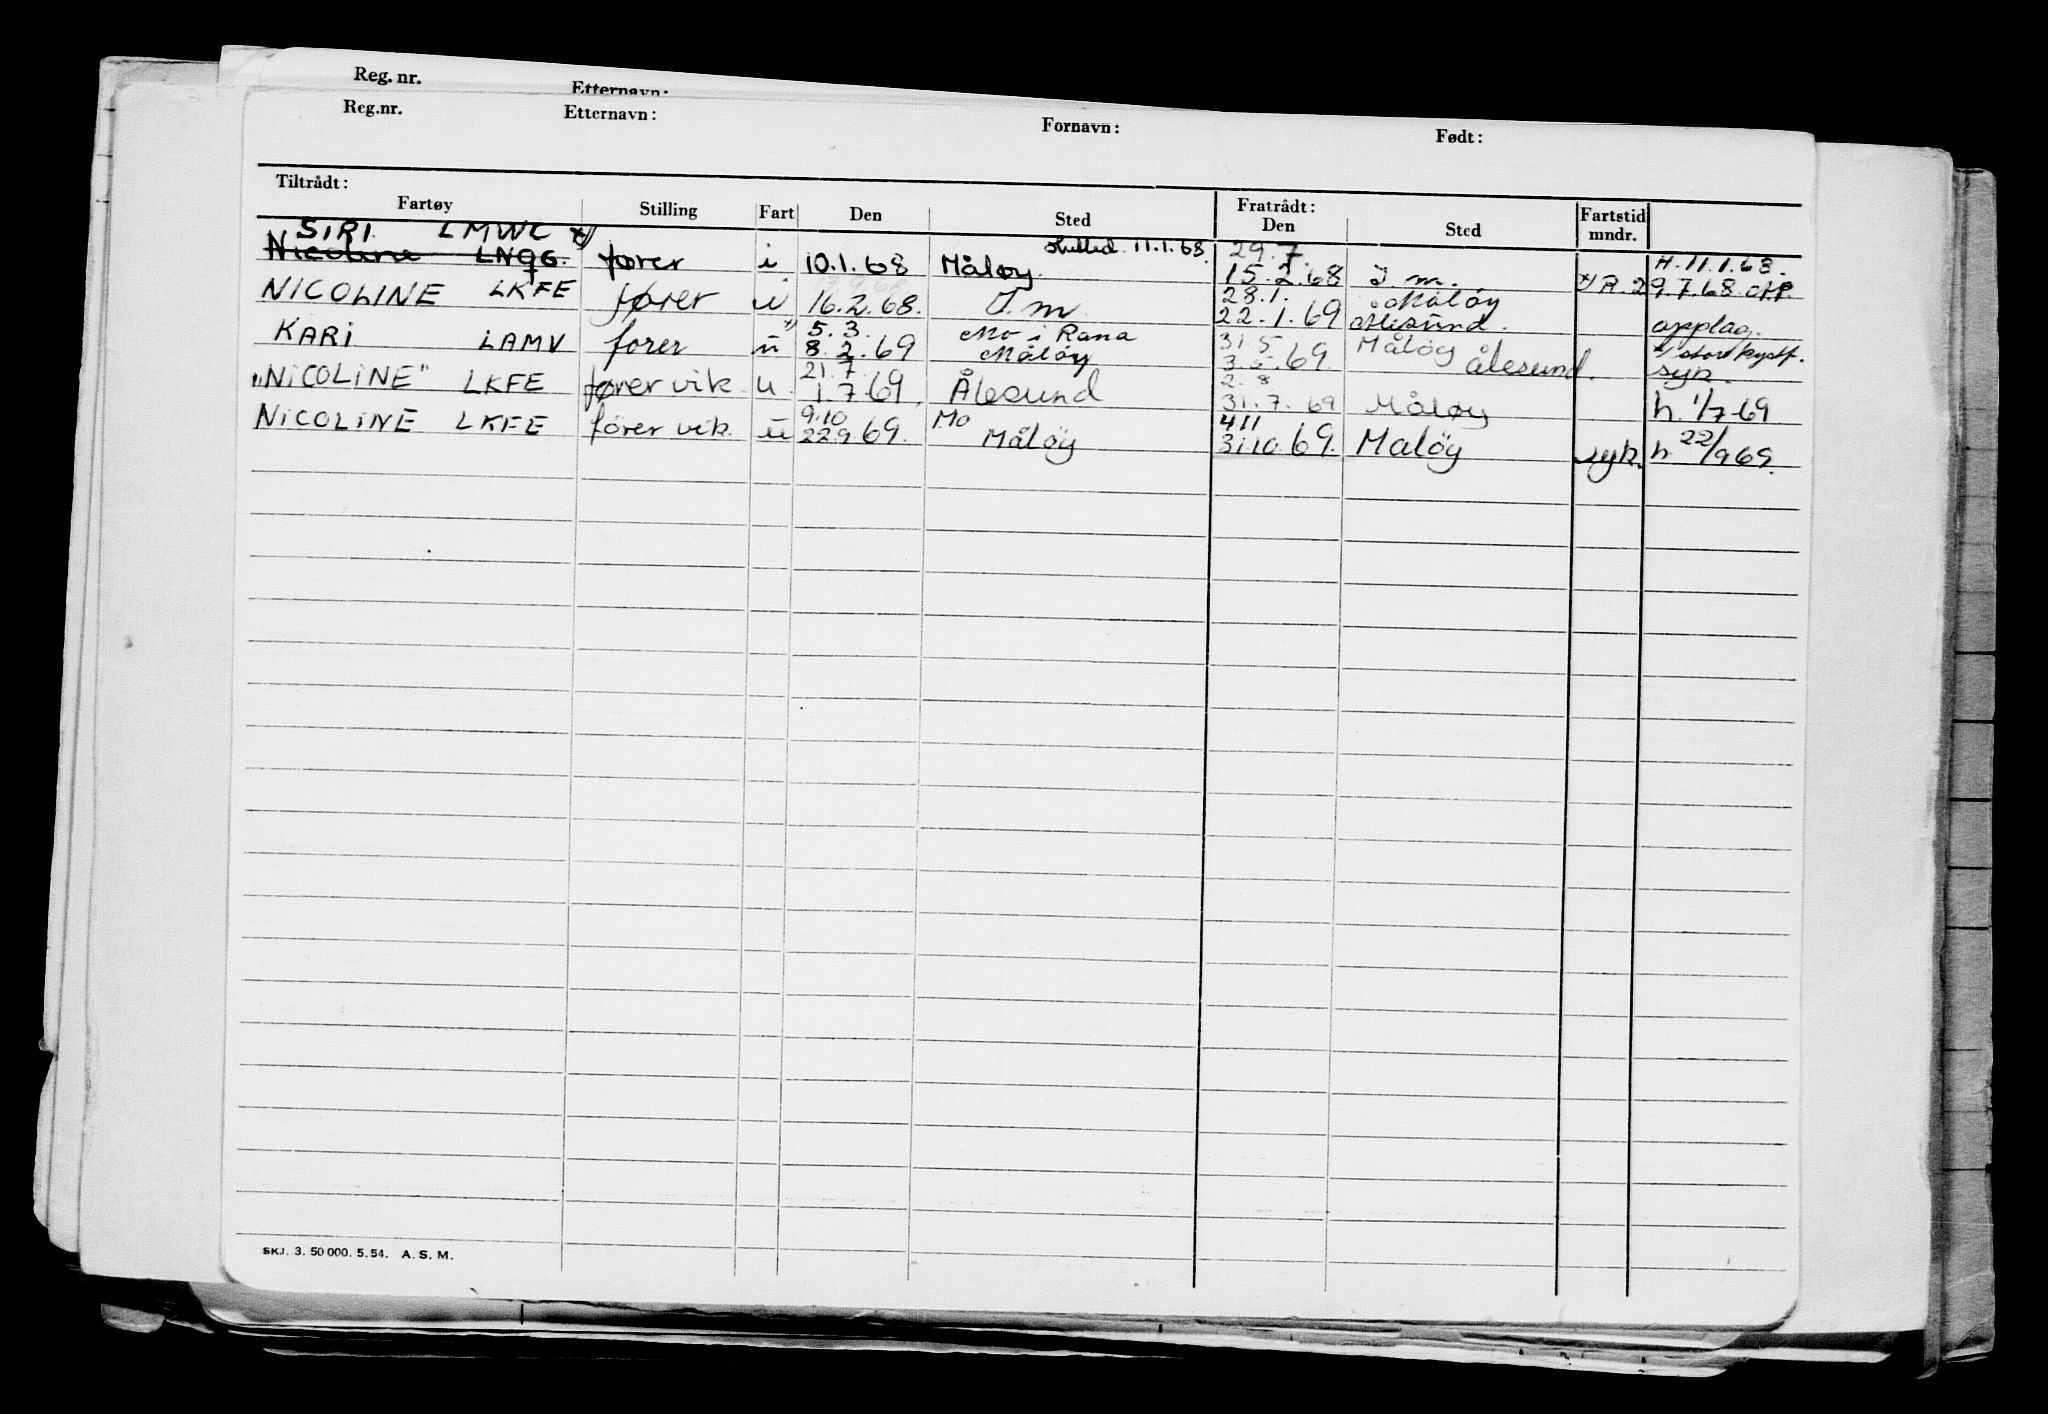 Reg. nr. Etternavn:
Reg.nr. Etternavn: Fornavn: Født:
Tiltrådt: Fratrådt:
Fartøy Stilling Fart Den Sted Den Sted Fartstid mndr.
SIRI LMWC x) 29.7.
Nicoline LNQG. fører i 10.1.68 Måløy. 11.1.68. 15.2.68 I. m. H. 11.1.68.
NICOLINE LKFE fører u 16.2.68. I.m 28.1. Måløy x) R. 29.7.68 opp.
22.1.69 Ålesund. opplag.
KARI LAMV fører u x) 5.3. Mo i Rana 31.5 Måløy x/ stor kystf.
8.2.69 Måløy 3.6.69 Ålesund. syk.
"NICOLINE" LKFE fører vik. u. 21.7. Ålesund 2.8
1.7.69. 31.7.69 Måløy h. 1/7-69
NICOLINE LKFE fører vik. u 9.10 Mo 4.11
22.9.69. Måløy 31.10.69. Måløy syk. h. 22/9 69.
SKJ. 3. 50 000. 5. 54. A. S. M.